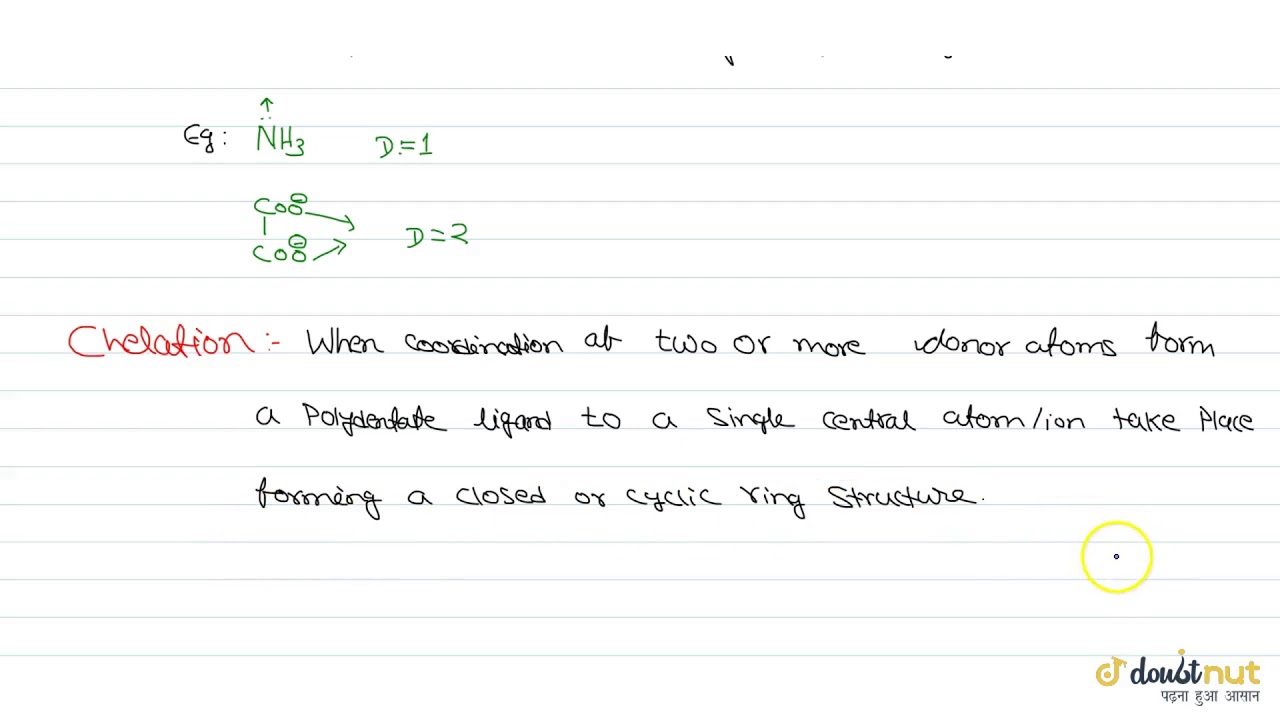 Eg: NH3 D=1
COO⊖
COO⊖ D=2
Chelation :- When coordination of two or more donor atoms form
a Polydentate ligand to a single central atom/ion take Place
forming a closed or cyclic ring structure.
doubtnut
पढ़ना हुआ आसान